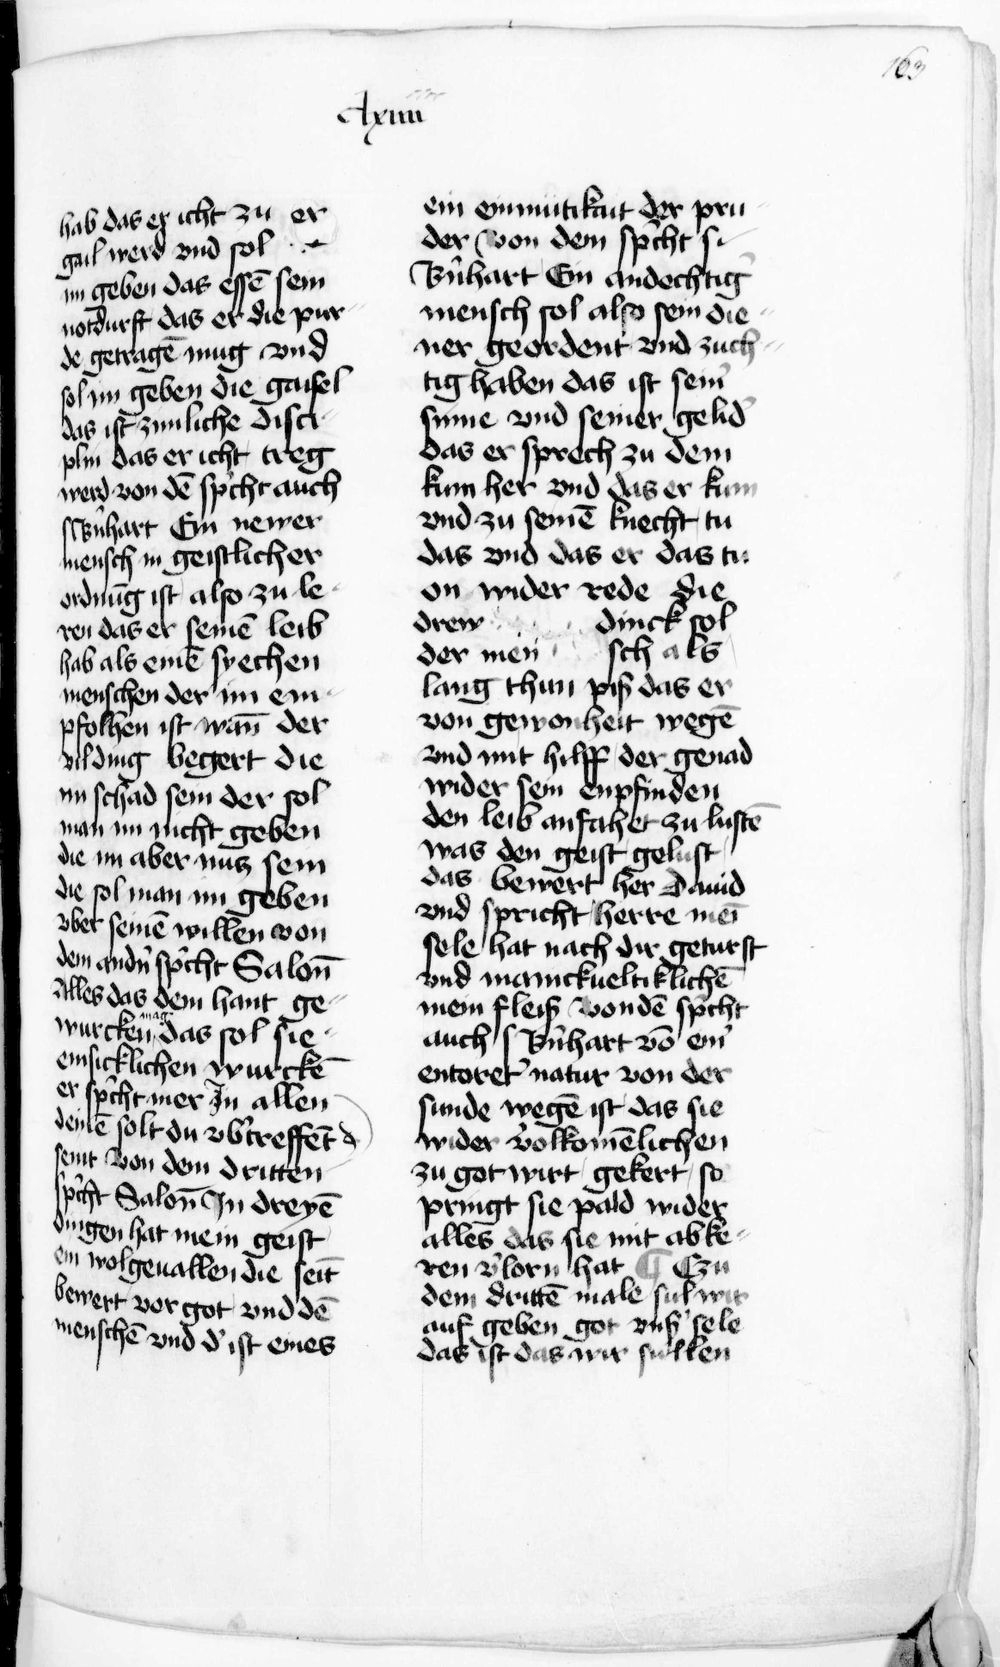 163
Axiiii
hab das er icht zu er
gail werd vnd sol
im geben das essē sein
notdurft das er die pur-
de getragē mug vnd
sol im geben die gaisel
das ist zimliche disci-
plin das er icht treg
werd von dē sp̄cht auch
s Bn̄hart Ein newer
mensch in geistlicher
ordnūg ist also zu le-
ren das er seinē leib
hab als einē syechen
menschen der im em-
pfolhen ist wan̄ der
vil ding begert die
im schad sein der sol
man im nicht geben
die im aber nutz sein
die sol man im geben
vber seinē willen von
dem andn̄ sp̄cht Salon̄
Alles das dein hant ge-
wurcken mag das sol sie
emsicklichen wurckē
er sp̄cht mer In allen
deinē solt du vbt̄reffent d
seint von dem dritten
sp̄cht Salon̄ In dreyē
dingen hat mein geist
ein wolgeuallen die seit̄
bewert vor got vnd dē
menschē vnd d' ist eines
ein einmutikait der pru-
der von dem sp̄cht s
Bn̄hart Ein andechtig'
mensch sol also sein die-
ner geordent vnd zuch-
tig haben das ist sein'
sinne vnd seiner gelid'
das er sprech zu dem
kum her vnd das er kum
vnd zu seinē knecht tu
das vnd das er das tu
on wider rede die
drew dinck sol
der men sch als
lang thun piß das er
von gewonheit wegē
vnd mit hilff der genad
wider sein enpfinden
den leib anfahet zu lustē
was den geist gelust
das bewert her Dauid
vnd spricht herre mei̅
sele hat nach dir geturst
vnd manickueltiklichē
mein fleiß von dē sp̄cht
auch s Bn̄hart vō ein'
entoret' natur von der
sunde wegē ist das sie
wider volkomēlichen
zu got wirt gekert so
pringt sie pald wider
alles das sie mit abke-
ren v'lorn hat ¶ Czu
dem drittē male sul wir
auf geben got vnß' sele
das ist das wir sullen